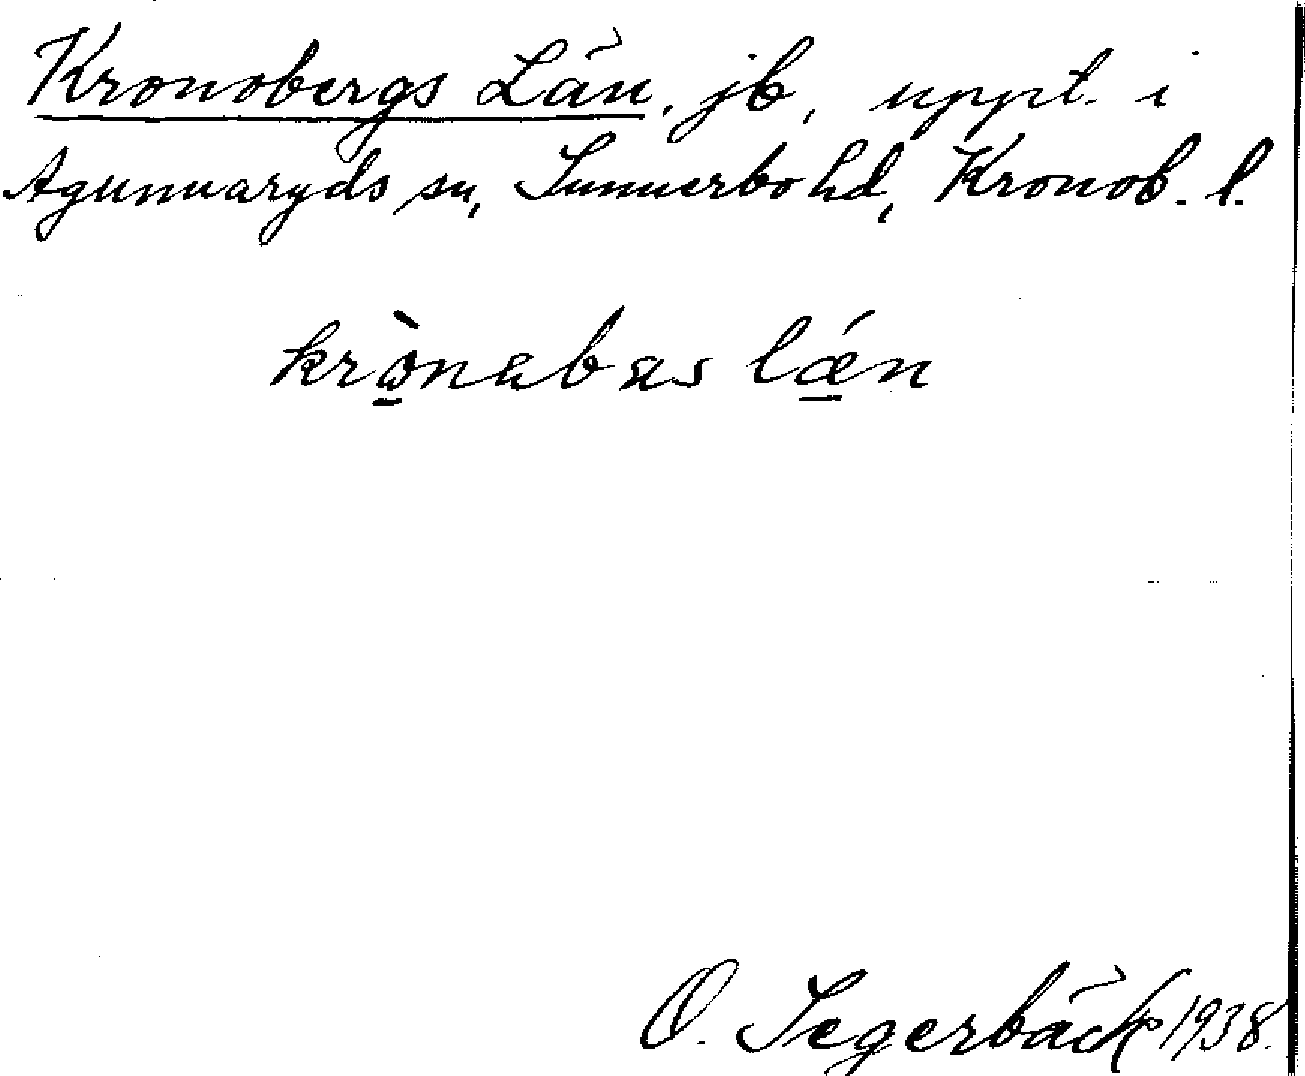 Kronobergs Län, jb, uppt. i
Agunnaryds sn, Sunnerbo hd, Kronob. l.
krònabas lǽn
O. Segerbäck 1938.